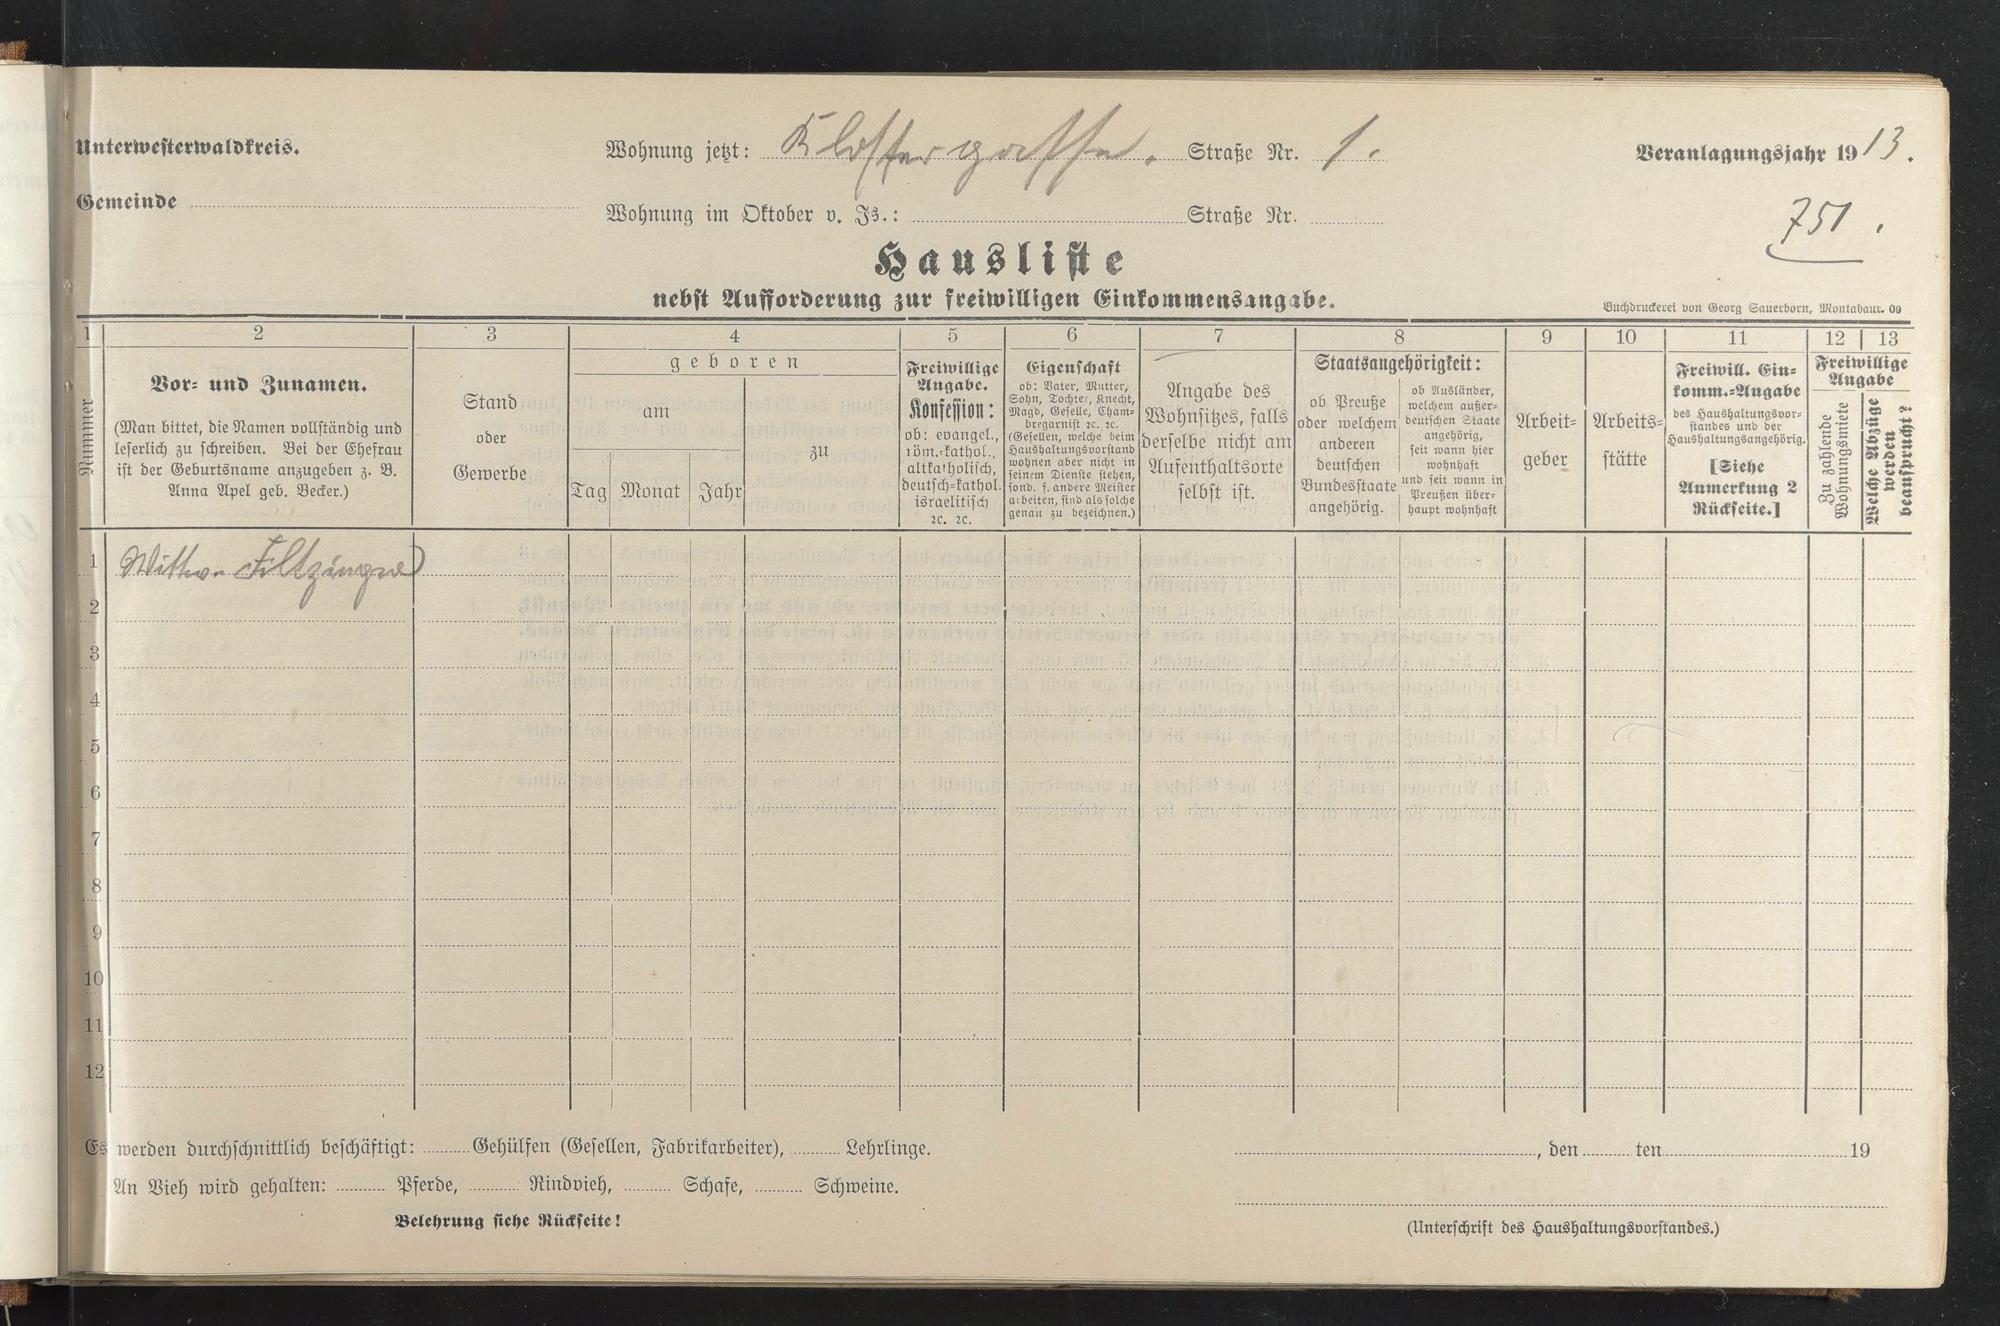 Unterwesterwaldkreis.
Wohnung jetzt: Klostergasse. Straße Nr. 1.
Veranlagungsjahr 1913.
Gemeinde
Wohnung im Oktober v. Js.: Straße Nr.
751.
Hausliste
nebst Aufforderung zur freiwilligen Einkommensangabe.
Buchdruckerei von Georg Sauerborn, Montabaur. 09
1 2 3 4 5 6 7 8 9 10 11 12 13
Nummer
Vor- und Zunamen.
(Man bittet, die Namen vollständig und
leserlich zu schreiben. Bei der Ehefrau
ist der Geburtsname anzugeben z. B.
Anna Apel geb. Becker.)
Stand
oder
Gewerbe
geboren
am
zu
Tag Monat Jahr
Freiwillige
Angabe.
Konfession:
ob: evangel.,
röm.-kathol.,
altkatholisch,
deutsch-kathol.
israelitisch
ꝛc. ꝛc.
Eigenschaft
ob: Vater, Mutter,
Sohn, Tochter, Knecht,
Magd, Geselle, Cham-
bregarnist ꝛc. ꝛc.
(Gesellen, welche beim
Haushaltungsvorstand
wohnen aber nicht in
seinem Dienste stehen,
sond. f. andere Meister
arbeiten, sind als solche
genau zu bezeichnen.)
Angabe des
Wohnsitzes, falls
derselbe nicht am
Aufenthaltsorte
selbst ist.
Staatsangehörigkeit:
ob Preuße
oder welchem
anderen
deutschen
Bundesstaate
angehörig.
ob Ausländer,
welchem außer-
deutschen Staate
angehörig,
seit wann hier
wohnhaft
und seit wann in
Preußen über-
haupt wohnhaft
Arbeit-
geber
Arbeits-
stätte
Freiwill. Ein-
komm.-Angabe
des Haushaltungsvor-
standes und der
Haushaltungsangehörig.
[Siehe
Anmerkung 2
Rückseite.]
Freiwillige
Angabe
Zu zahlende
Wohnungsmiete
Welche Abzüge
werden
beansprucht?
1 Filtzinger
2
3
4
5
6
7
8
9
10
11
12
Es werden durchschnittlich beschäftigt: Gehülfen (Gesellen, Fabrikarbeiter), Lehrlinge.
, den ten 19
An Vieh wird gehalten: Pferde, Rindvieh, Schafe, Schweine.
Belehrung siehe Rückseite!
(Unterschrift des Haushaltungsvorstandes.)